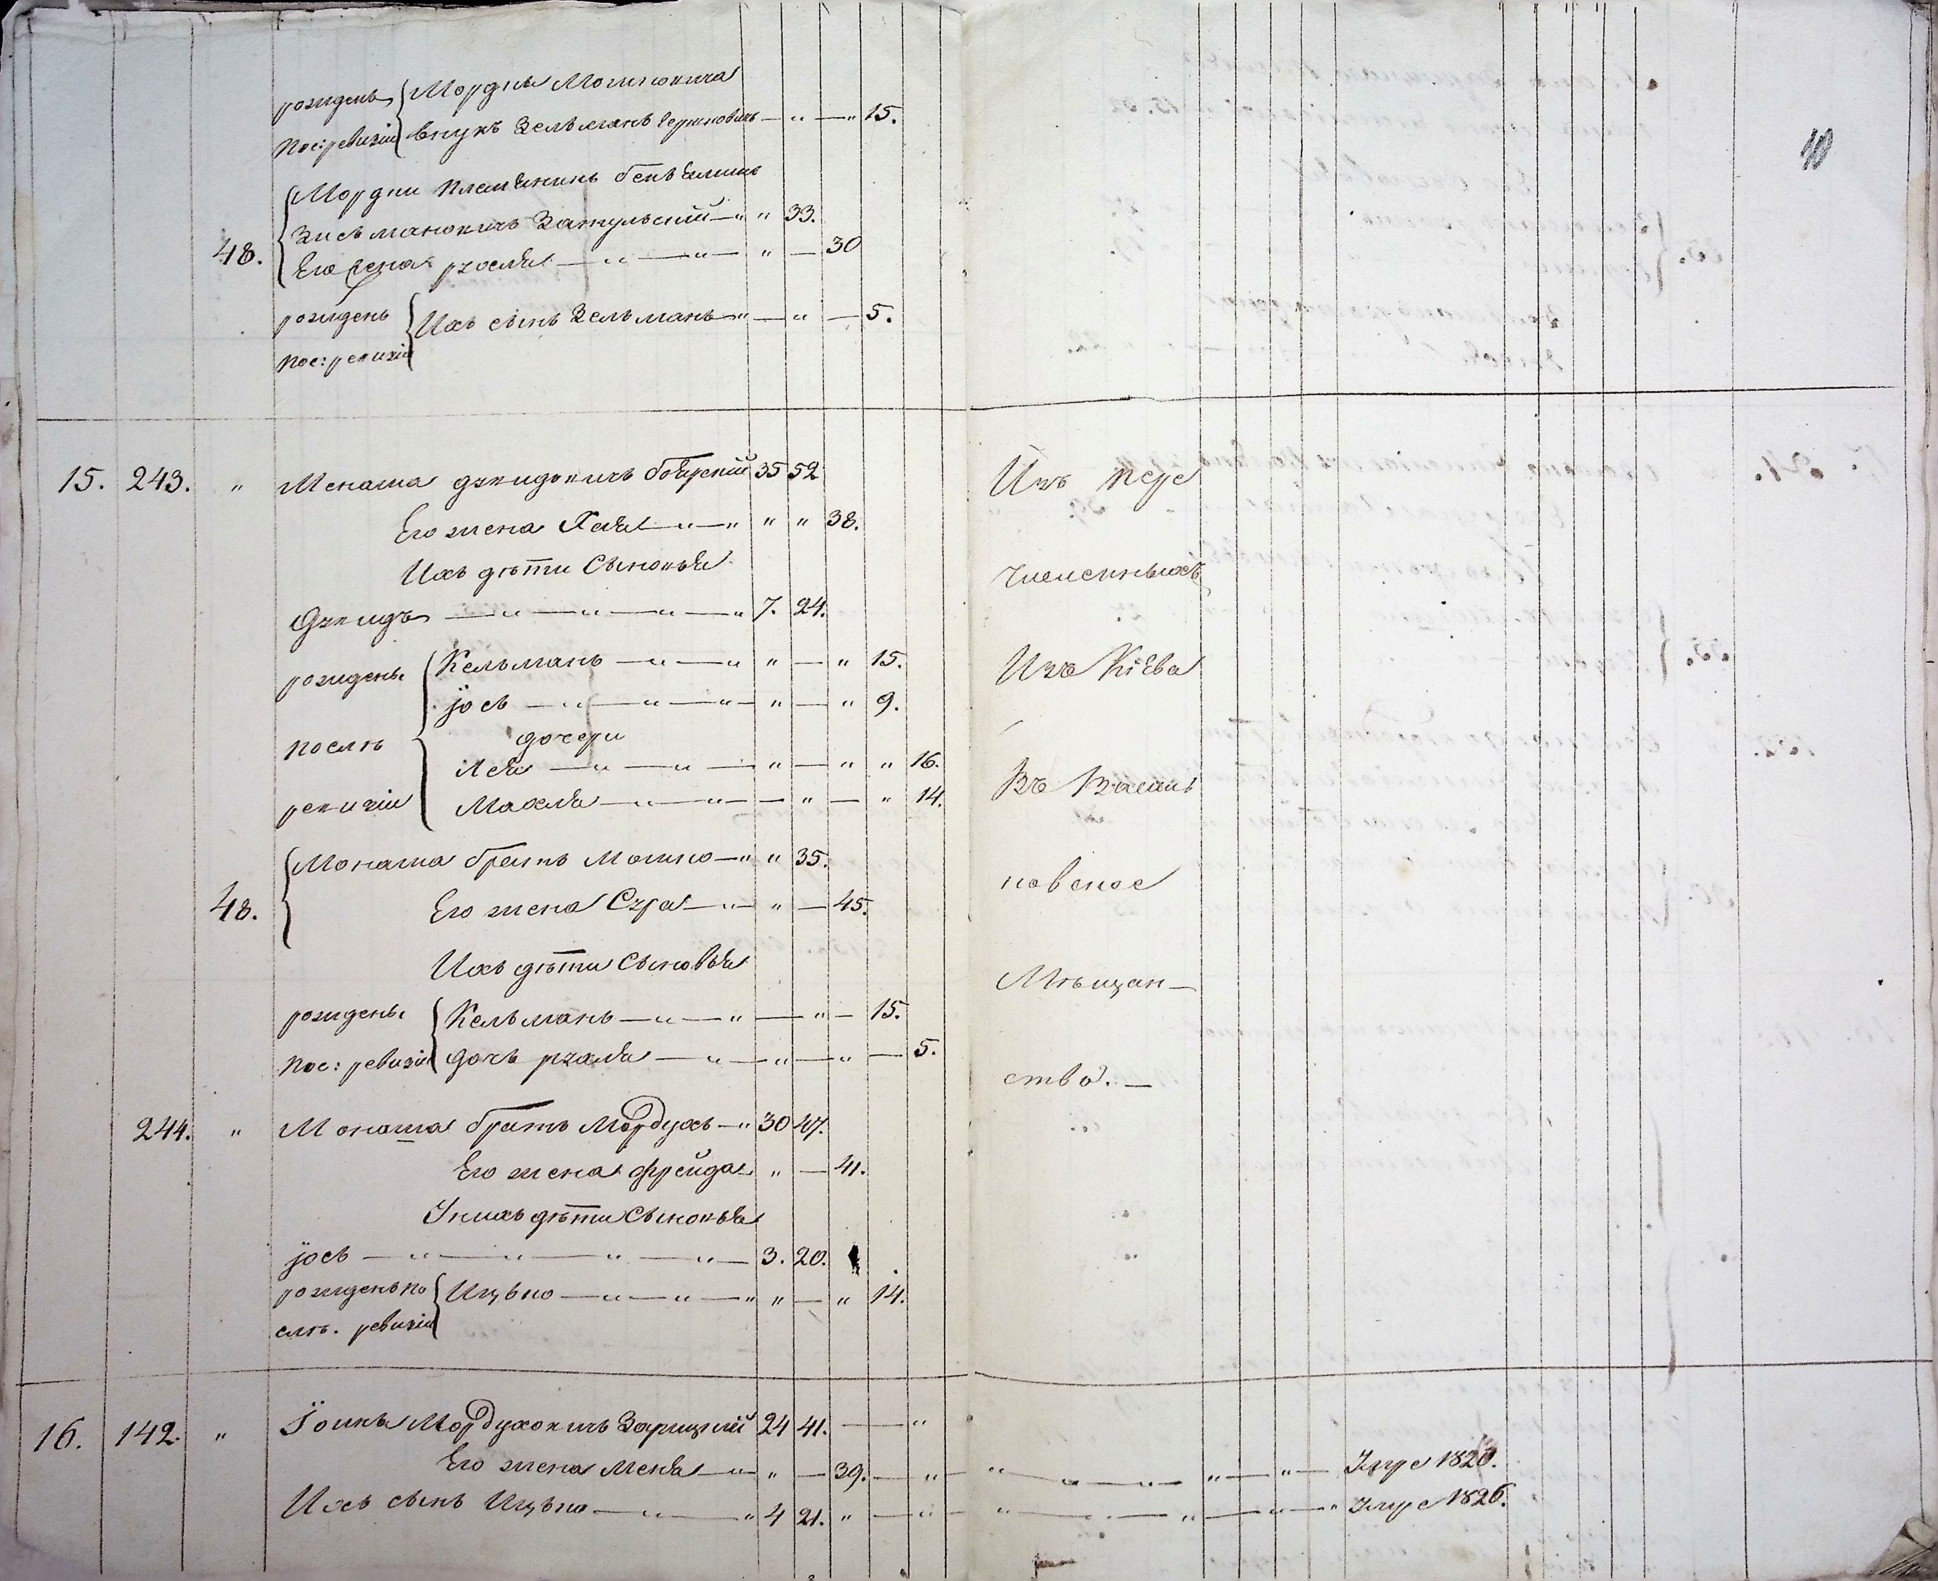 рожденъ { Мордки Мошковича
пос: ревизіи { внукъ Зельманъ Гершковичъ — „ — „ 15.
Мордки племянникъ
Зусьмановичъ — „ „ 33.
48. Его жена рухля — „ — „ — „ — 30
рожденъ
пос: ревизіи { Ихъ сынъ Зельманъ — „ — „ — 5.
15. 243. „ Монаша Давидовичъ Боярскій 35 52
Его жена Хая — „ — „ „ „ 38.
Ихъ дѣти Сыновья
Давидъ — „ — „ — „ — „ 7. 24.
рожденъ { Кельманъ — „ — „ „ — „ 15.
Іось — „ — „ — „ — „ — „ 9.
послѣ дочери
Лея — „ — „ — „ — „ „ 16.
ревизіи Махля — „ — „ — „ — „ 14.
48. { Монаша братъ Мошко — „ „ 35.
Его жена Сура — „ — „ — 45.
Ихъ дѣти Сыновья
рожденъ { Кельманъ — „ — „ — „ — 15.
пос: ревизіи { дочь рухля — „ — „ — „ — 5.
244. „ Монаша братъ Мордухъ — „ 30 47.
Его жена фрейда „ — 41.
У нихъ дѣти Сыновья
Іось — „ — „ — „ — „ — 3. 20.
рожденъ по { Ицько — „ — „ — „ „ — „ 14.
слѣ. ревизіи
16. 142. „ Мордуховичъ Зарицкій 24 41. — „
Его жена Меня — „ — „ — 39. — „ — „ — „ — „ — „ — „ — Умре 1820.
Ихъ сынъ Ицько — „ — „ 4 21. „ — „ — „ — „ — „ — „ — „ Умре 1826.
Изъ пере
численныхъ
Изъ Кіева
Въ Василь
ковское
Мѣщан —
ство. —